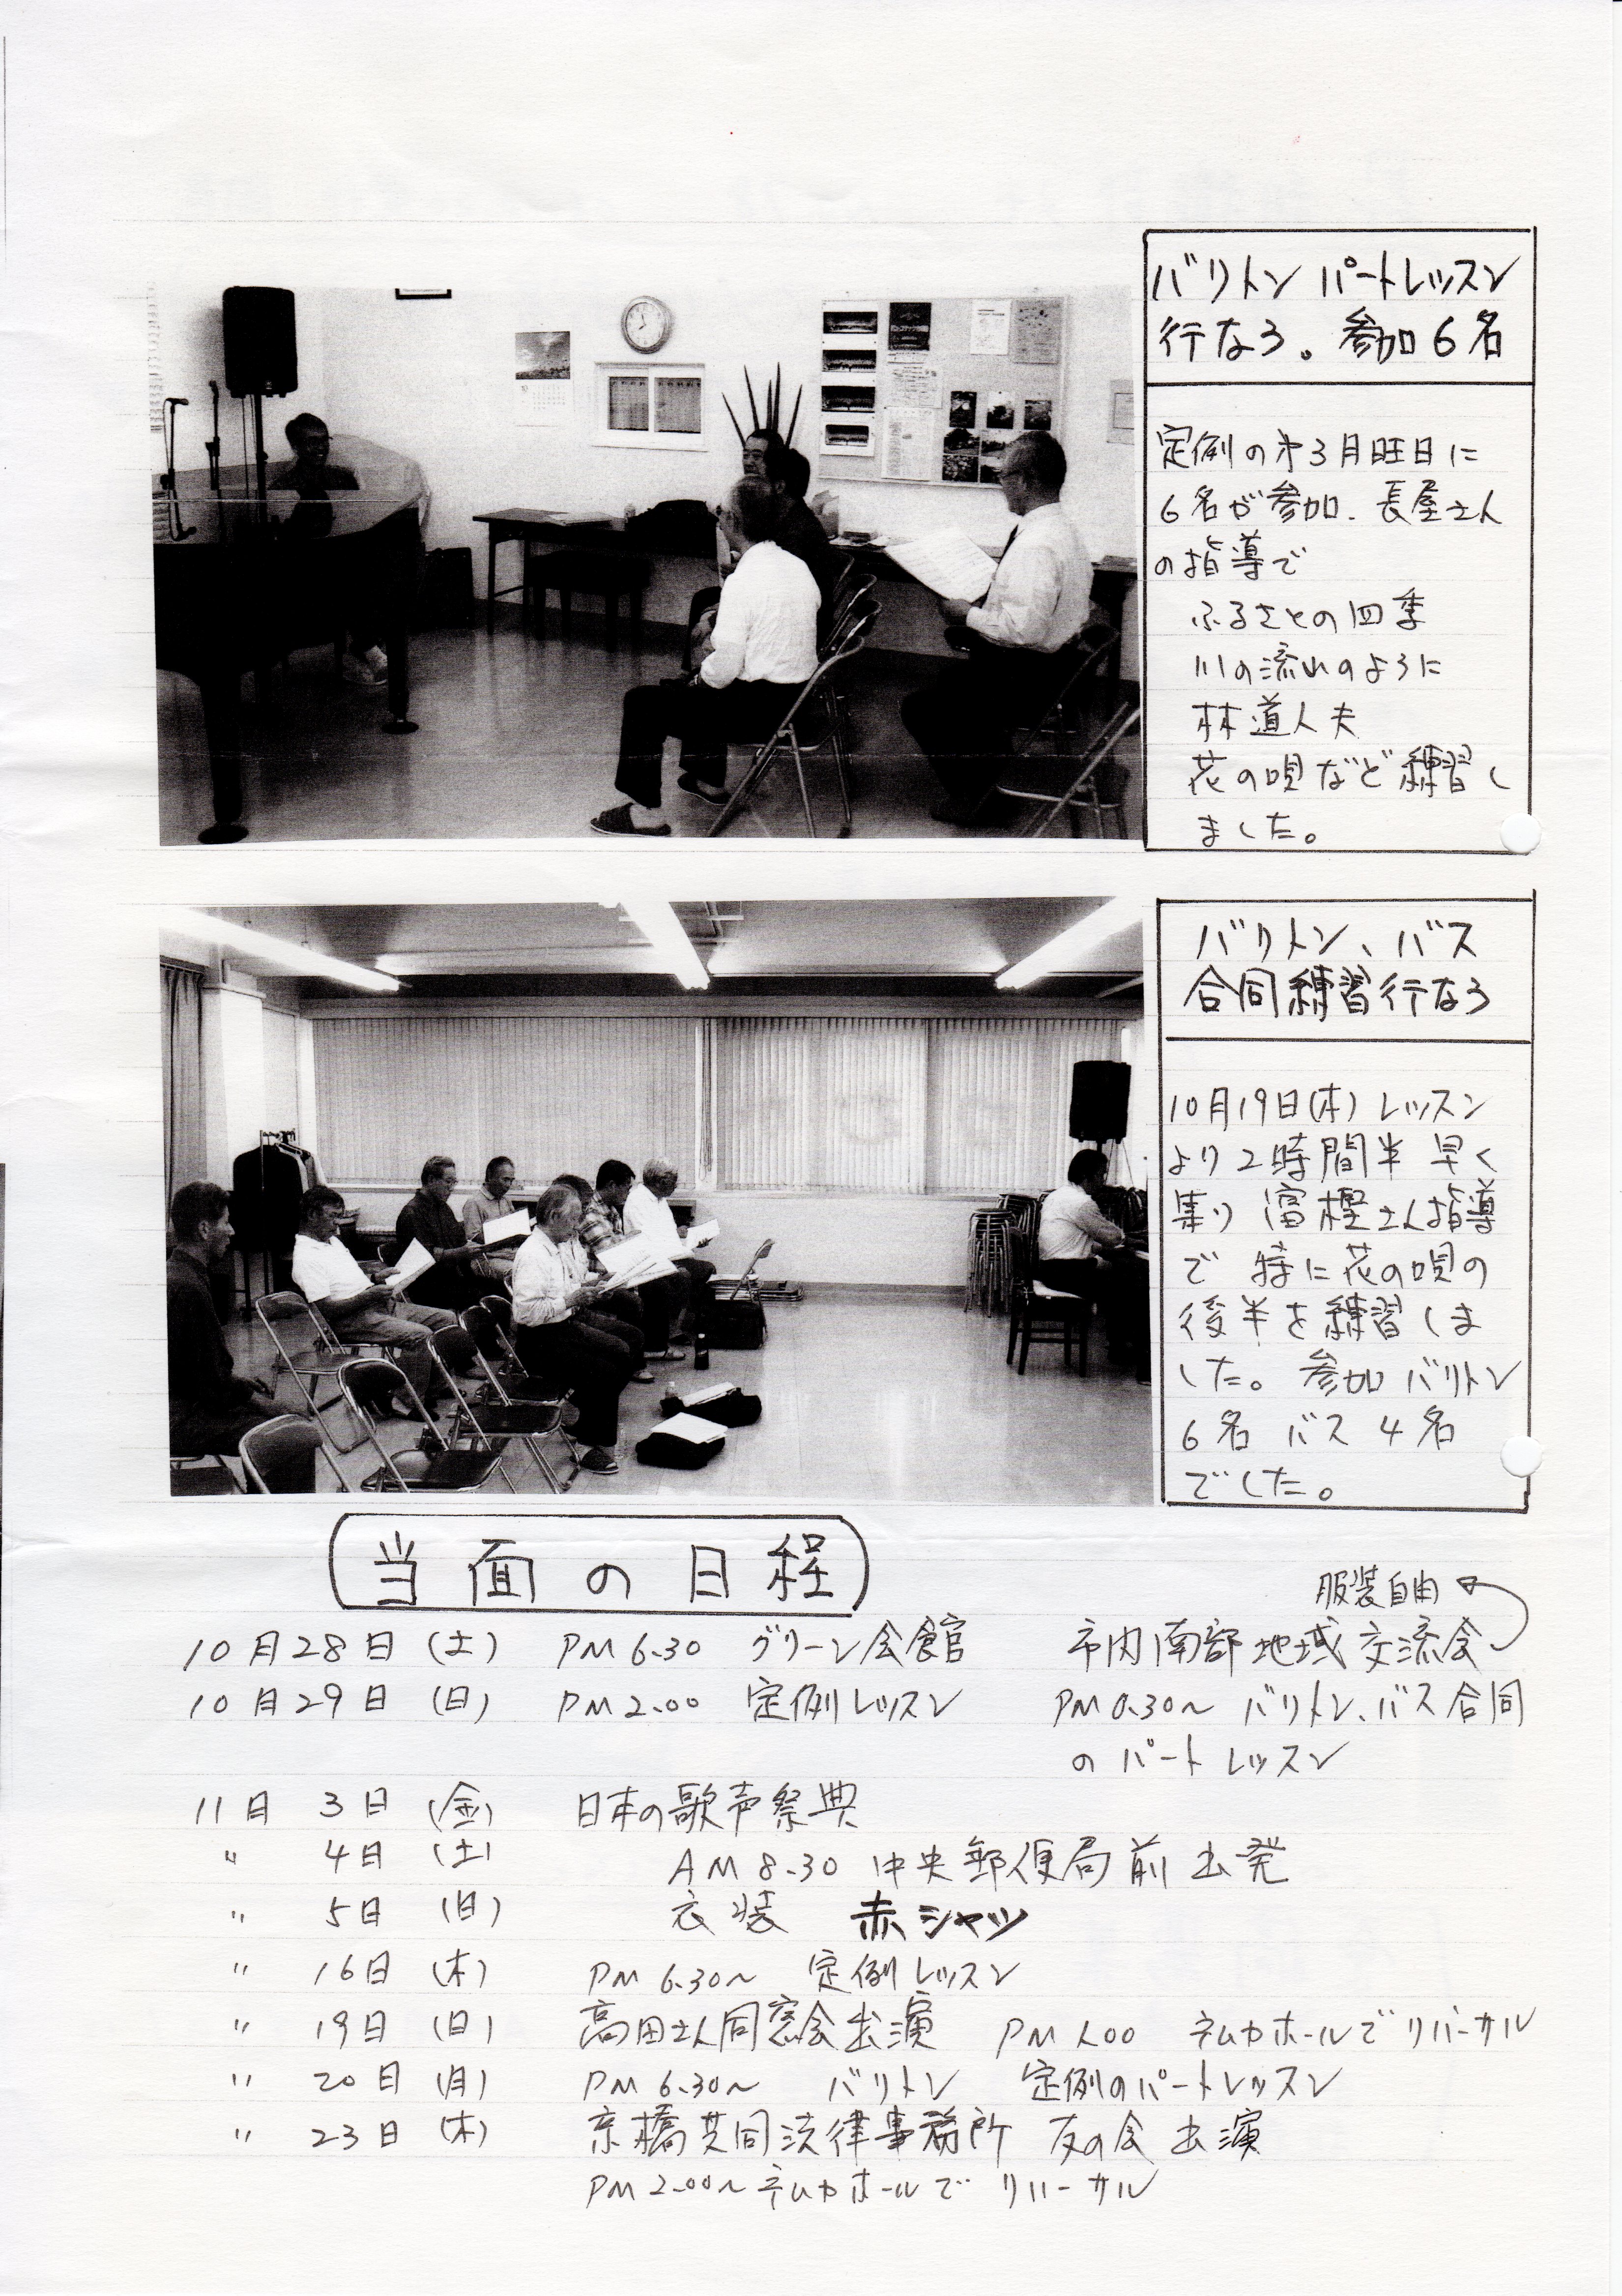 バリトン パートレッスン
行なう。参加6名
定例の第3月旺日に
6名が参加、長屋さん
の指導で
ふるさとの四季
川の流れのように
林道人夫
花の唄など練習し
ました。
バリトン、バス
合同練習行なう
10月19日(木) レッスン
より2時間半 早く
集り 富樫さん指導
で 特に花の唄の
後半を練習しま
した。参加 バリトン
6名 バス 4名
でした。
当面の日程
服装自由
10月28日(土) PM6.30 グリーン会館 市内南部地域交流会
10月29日(日) PM2.00 定例レッスン PM0.30〜 バリトン、バス合同
のパートレッスン
11月 3日(金) 日本の歌声祭典
〃 4日(土) AM8.30 中央郵便局前出発
〃 5日(日) 衣装 赤シャツ
〃 16日(木) PM6.30〜 定例レッスン
〃 19日(日) 高田さん同窓会出演 PM1.00 ネムカホールでリハーサル
〃 20日(月) PM6.30〜 バリトン 定例のパートレッスン
〃 23日(木) 京橋共同法律事務所 友の会 出演
PM2.00〜ネムカホールで リハーサル